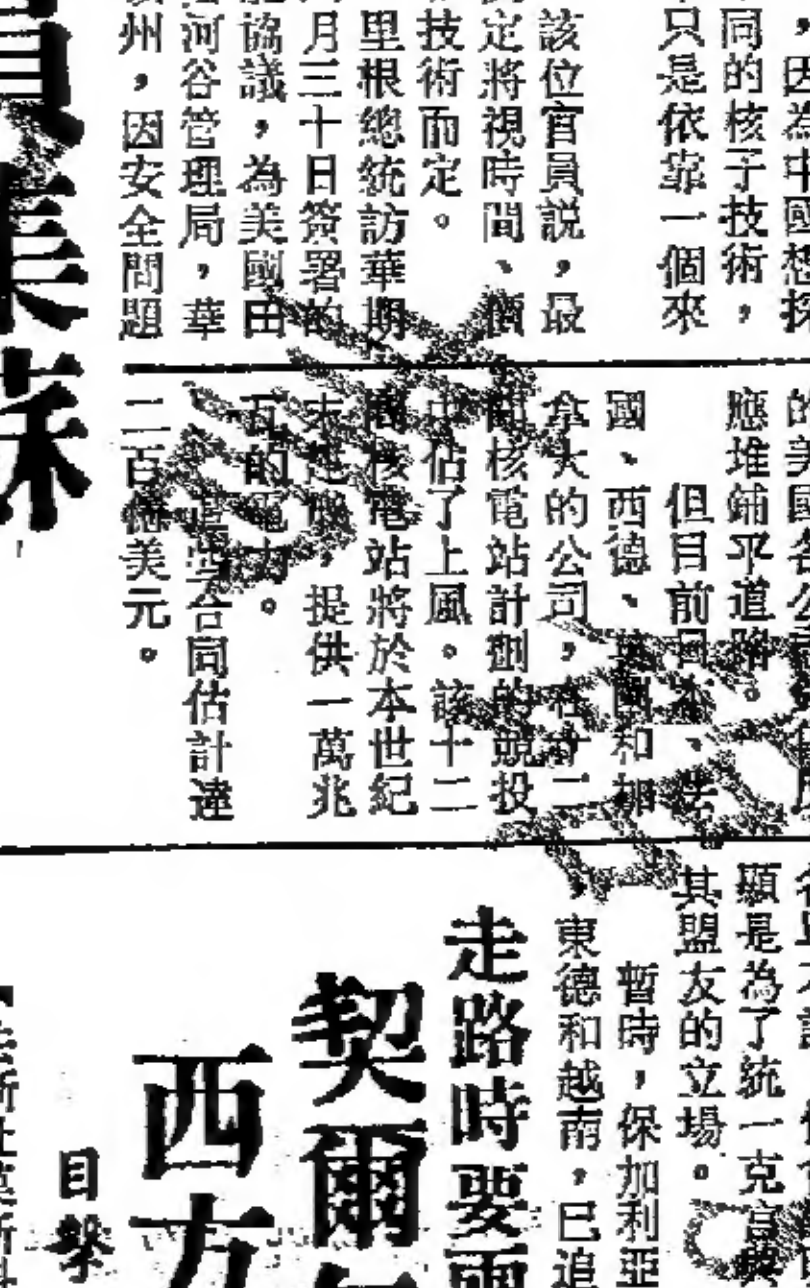 ，因為中國想採
同的核子技術，
只是依靠一個來
該位官員説，最
定將視時間、價
技術而定。
里根總統訪華期
月三十日簽署的
協議，為美國田
河谷管理局，華
州，因安全問題
的美國各公司
應堆鋪平道路。
但目前日本、法
國、西德、英國和加
拿大的公司，在十二
間核電站計劃的競投
中佔了上風。該十二
間核電站將於本世紀
末建成，提供一萬兆
瓦的電力。
這些合同估計達
二百億美元。
顯是為了統一克宮與
其盟友的立場。
暫時，保加利亞
，東德和越南，已追
走路時要
契爾
西方
目擊